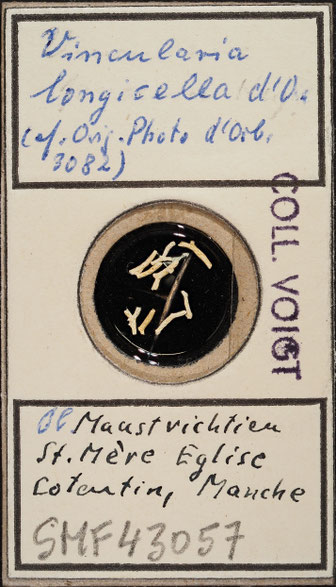 Vincularia
longicella d'O.
(cf. Orig. Photo d'Orb.
3082)
COLL. VOIGT
Maastrichtien
St. Mère Eglise
Cotentin, Manche
SMF43057